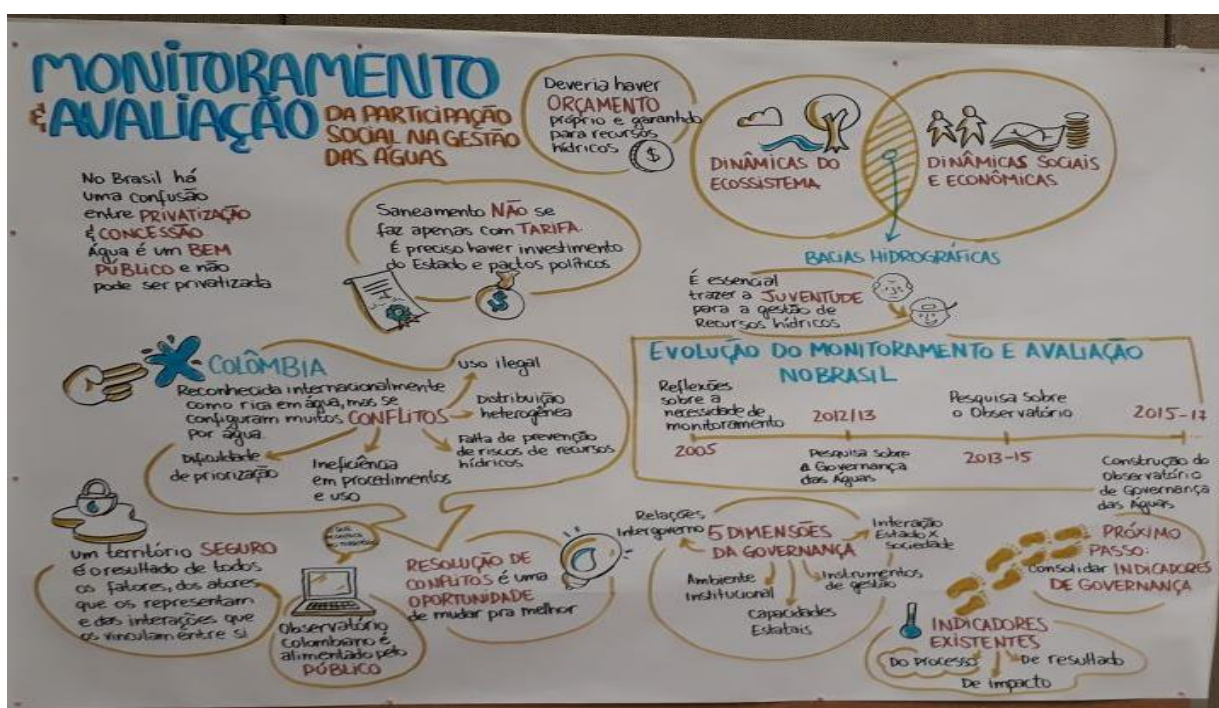 MONITORAMENTO
& AVALIAÇÃO
DA PARTICIPAÇÃO
SOCIAL NA GESTÃO
DAS ÁGUAS
Deveria haver
ORÇAMENTO
próprio e garantido
para recursos
hídricos
$
DINÂMICAS DO
ECOSSISTEMA
DINÂMICAS SOCIAIS
E ECONÔMICAS
BACIAS HIDROGRÁFICAS
No Brasil há
uma confusão
entre PRIVATIZAÇÃO
& CONCESSÃO
Água é um BEM
PÚBLICO e não
pode ser privatizada
Saneamento NÃO se
faz apenas com TARIFA.
É preciso haver investimento
do Estado e pactos políticos
$
É essencial
trazer a JUVENTUDE
para a gestão de
Recursos hídricos
COLÔMBIA
Reconhecida internacionalmente
como rica em água, mas se
configuram muitos CONFLITOS
por água.
uso ilegal
Distribuição
heterogênea
Falta de prevenção
de riscos de recursos
hídricos
Ineficiência
em procedimentos
e uso
Dificuldade
de priorização
EVOLUÇÃO DO MONITORAMENTO E AVALIAÇÃO
NO BRASIL
Reflexões
sobre a
necessidade de
monitoramento
2005
2012/13
Pesquisa sobre
a Governança
das Águas
Pesquisa Sobre
o Observatório
2013-15
2015-17
Construção do
Observatório
de Governança
das Águas
um território SEGURO
é o resultado de todos
os fatores, dos atores
que os representam
e das interações que
os vinculam entre si
Observatório
Colombiano é
alimentado pelo
PÚBLICO
RESOLUÇÃO DE
CONFLITOS é uma
OPORTUNIDADE
de mudar pra melhor
5 DIMENSÕES
DA GOVERNANÇA
Relações
Intergoverno
Ambiente
Institucional
Capacidades
Estatais
Instrumentos
de gestão
Interação
Estado x
Sociedade
PRÓXIMO
PASSO:
Consolidar INDICADORES
DE GOVERNANÇA
INDICADORES
EXISTENTES
Do processo
De impacto
De resultado